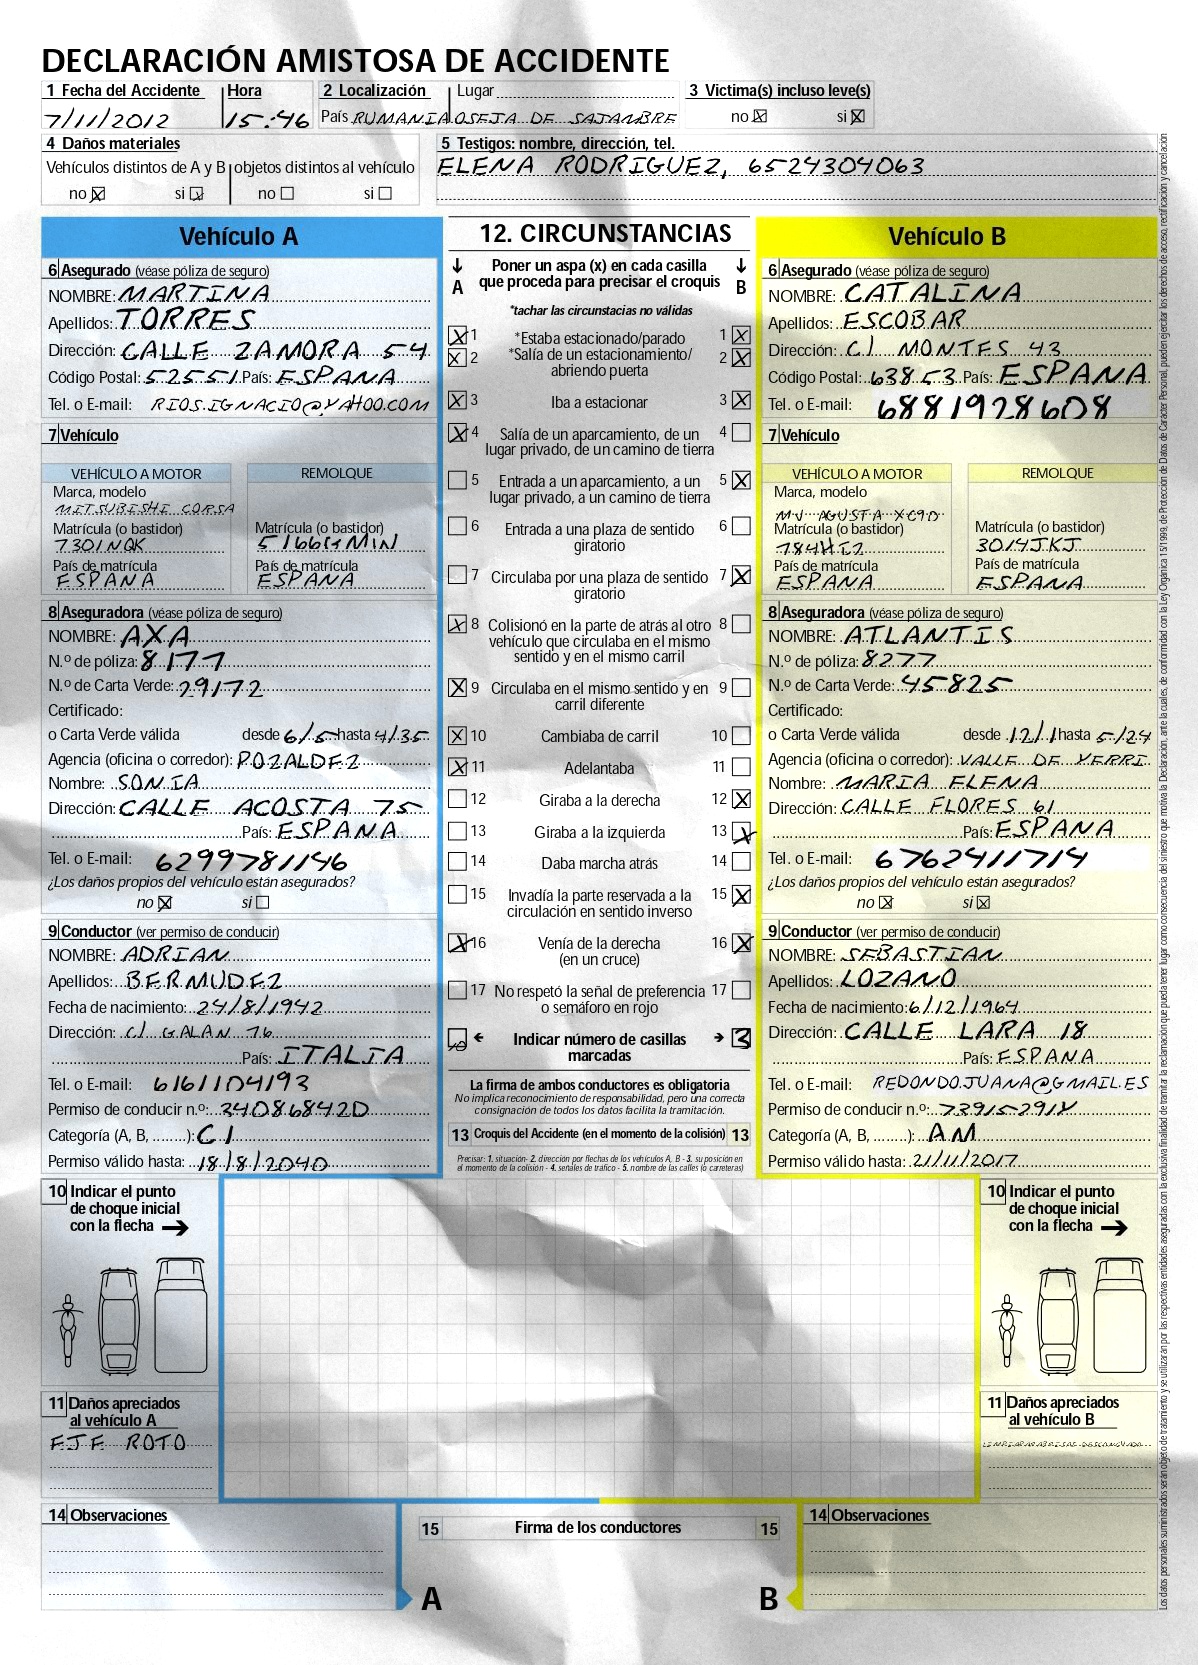 DECLARACIÓN AMISTOSA DE ACCIDENTE
1 Fecha del Accidente Hora 2 Localización Lugar 3 Victima(s) incluso leve(s)
7/11/2012 15:46 País RUMANIA OSEJA DE SAJAMBRE no si
4 Daños materiales 5 Testigos: nombre, dirección, tel.
Vehículos distintos de A y B objetos distintos al vehículo ELENA RODRIGUEZ, 6524304063
no si no si
Vehículo A
6 Asegurado (véase póliza de seguro)
NOMBRE: MARTINA
Apellidos: TORRES
Dirección: CALLE ZAMORA 54
Código Postal: 52551 País: ESPANA
Tel. o E-mail: RIOS.IGNACIO@YAHOO.COM
7 Vehículo
VEHÍCULO A MOTOR REMOLQUE
Marca, modelo
MITSUBISHI CORSA
Matrícula (o bastidor) Matrícula (o bastidor)
7301NQK 5166GMIN
País de matrícula País de matrícula
ESPANA ESPANA
8 Aseguradora (véase póliza de seguro)
NOMBRE: AXA
N.º de póliza: 8177
N.º de Carta Verde: 29172
Certificado:
o Carta Verde válida desde 6/5 hasta 4/35
Agencia (oficina o corredor): POZALDEZ
Nombre: SONIA
Dirección: CALLE ACOSTA 75
País: ESPANA
Tel. o E-mail: 6299781146
¿Los daños propios del vehículo están asegurados?
no si
9 Conductor (ver permiso de conducir)
NOMBRE: ADRIAN
Apellidos: BERMUDEZ
Fecha de nacimiento: 24/8/1942
Dirección: C/ GALAN 76
País: ITALIA
Tel. o E-mail: 6161104193
Permiso de conducir n.º: 34086842D
Categoría (A, B, ........): C1
Permiso válido hasta: 18/8/2040
12. CIRCUNSTANCIAS
Poner un aspa (x) en cada casilla
A que proceda para precisar el croquis B
*tachar las circunstacias no válidas
1 *Estaba estacionado/parado 1
2 *Salía de un estacionamiento/ 2
abriendo puerta
3 Iba a estacionar 3
4 Salía de un aparcamiento, de un 4
lugar privado, de un camino de tierra
5 Entrada a un aparcamiento, a un 5
lugar privado, a un camino de tierra
6 Entrada a una plaza de sentido 6
giratorio
7 Circulaba por una plaza de sentido 7
giratorio
8 Colisionó en la parte de atrás al otro 8
vehículo que circulaba en el mismo
sentido y en el mismo carril
9 Circulaba en el mismo sentido y en 9
carril diferente
10 Cambiaba de carril 10
11 Adelantaba 11
12 Giraba a la derecha 12
13 Giraba a la izquierda 13
14 Daba marcha atrás 14
15 Invadía la parte reservada a la 15
circulación en sentido inverso
16 Venía de la derecha 16
(en un cruce)
17 No respetó la señal de preferencia 17
o semáforo en rojo
10 Indicar número de casillas 3
marcadas
La firma de ambos conductores es obligatoria
No implica reconocimiento de responsabilidad, pero una correcta
consignación de todos los datos facilita la tramitación.
13 Croquis del Accidente (en el momento de la colisión) 13
Precisar: 1. situación- 2. dirección por flechas de los vehículos A, B - 3. su posición en
el momento de la colisión - 4. señales de tráfico - 5. nombre de las calles (o carreteras)
Vehículo B
6 Asegurado (véase póliza de seguro)
NOMBRE: CATALINA
Apellidos: ESCOBAR
Dirección: C/ MONTES 43
Código Postal: 63853 País: ESPANA
Tel. o E-mail: 6881928608
7 Vehículo
VEHÍCULO A MOTOR REMOLQUE
Marca, modelo
MV AGUSTA XC9D
Matrícula (o bastidor) Matrícula (o bastidor)
784HIZ 3014JKJ
País de matrícula País de matrícula
ESPANA ESPANA
8 Aseguradora (véase póliza de seguro)
NOMBRE: ATLANTIS
N.º de póliza: 8277
N.º de Carta Verde: 45825
Certificado:
o Carta Verde válida desde 12/1 hasta 5/24
Agencia (oficina o corredor): VALLE DE YERRI
Nombre: MARIA ELENA
Dirección: CALLE FLORES 61
País: ESPANA
Tel. o E-mail: 6762411714
¿Los daños propios del vehículo están asegurados?
no si
9 Conductor (ver permiso de conducir)
NOMBRE: SEBASTIAN
Apellidos: LOZANO
Fecha de nacimiento: 6/12/1964
Dirección: CALLE LARA 18
País: ESPANA
Tel. o E-mail: REDONDOJUANA@GMAIL.ES
Permiso de conducir n.º: 73915291X
Categoría (A, B, ........): AM
Permiso válido hasta: 21/11/2017
10 Indicar el punto
de choque inicial
con la flecha
11 Daños apreciados
al vehículo A
EJE ROTO
10 Indicar el punto
de choque inicial
con la flecha
11 Daños apreciados
al vehículo B
LIMPIAPARABRISAS DESCONCHADO
14 Observaciones
15 Firma de los conductores 15
A B
14 Observaciones
Los datos personales suministrados serán objeto de tratamiento y se utilizaran por las respectivas entidades aseguradas con la exclusiva finalidad de tramitar la reclamación que pueda tener lugar como consecuencia del siniestro que motiva la Declaración, ante la cuales, de conformidad con la Ley Orgánica 15/1999, de Protección de Datos de Carácter Personal, pueden ejercitar los derechos de acceso, rectificación y cancelación